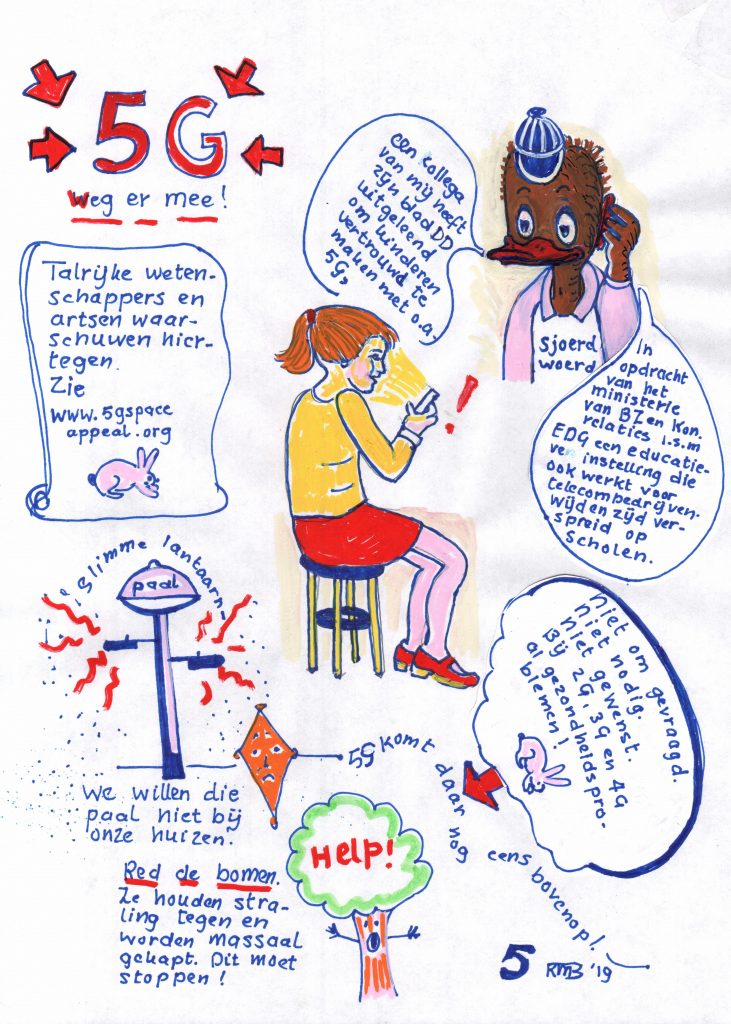 5G
Weg er mee!
Talrijke weten-
schappers en
artsen waar-
schuwen hier-
tegen.
Zie
www.5gspace
appeal.org
een collega
van mij heeft
zijn blad DD
uitgeleend
om kinderen
vertrouwd te
maken met o.a.
5G,
!
Sjoerd
woerd
In
opdracht
van het
ministerie
van BZ en Kon.
relaties i.s.m
EDG een educatie-
ve instelling die
ook werkt voor
telecombedrijven.
Wijd en zijd ver-
spreid op
scholen.
Slimme lantaarn
paal
We willen die
paal niet bij
onze huizen.
Niet om gevraagd.
niet nodig.
Niet gewenst.
Bij 2G, 3G en 4G
al gezondheidspro-
blemen!
5G komt daar nog eens bovenop!
Help!
Red de bomen.
Ze houden stra-
ling tegen en
worden massaal
gekapt. Dit moet
stoppen!
5 RMB '19